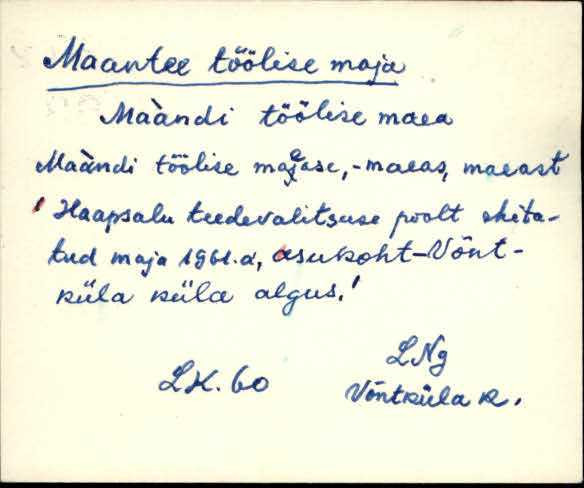 Maantee töölise maja
Maàndi töölise maea
Maàndi töölise maease, -maeas, maeast
' Haapsalu teedevalitsuse poolt ehita-
tud maja 1961.a, asukoht-Võnt-
küla küla algus.'
LNg
LK. 60
Võntküla k.